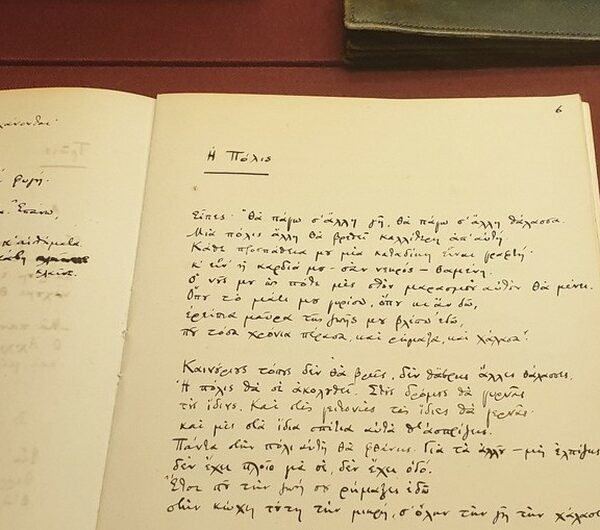 6
Ἡ Πόλις
φυγή.
Ἐπάνω,
κ' αἰσθήματα
Εἶπες· «Θὰ πάγω σ' ἄλλη γῆ, θὰ πάγω σ' ἄλλη θάλασσα.
Μιὰ πόλις ἄλλη θὰ βρεθεῖ καλλίτερη ἀπ' αὐτή.
Κάθε προσπάθεια μου μιὰ καταδίκη εἶναι γραφτή·
κ' εἶν' ἡ καρδιά μου — σὰν νεκρός — θαμένη.
Ὁ νῦς μου ὡς πότε μὲς στὸν μαρασμὸν αὐτὸν θὰ μένει.
Ὅπου τὸ μάτι μου γυρίσω, ὅπου κι ἂν δῶ,
ἐρείπια μαῦρα τῆς ζωῆς μου βλέπω ἐδῶ,
ποὺ τόσα χρόνια πέρασα, καὶ ρήμαξα, καὶ χάλασα.»
Καινούριους τόπους δὲν θὰ βρεῖς, δὲν θἄβρεις ἄλλες θάλασσες.
Ἡ πόλις θὰ σὲ ἀκολουθεῖ. Στοὺς δρόμους θὰ γυρνᾶς
τοὺς ἴδιους. Καὶ στὲς γειτονιὲς τὲς ἴδιες θὰ γερνᾶς·
καὶ μὲς στὰ ἴδια σπίτια αὐτὰ θ' ἀσπρίζεις.
Πάντα στὴν πόλι αὐτὴ θὰ φθάνεις. Γιὰ τὰ ἀλλοῦ — μὴ ἐλπίζεις
δὲν ἔχει πλοῖο γιὰ σέ, δὲν ἔχει ὁδό.
Ἔτσι ποὺ τὴν ζωή σου ρήμαξες ἐδῶ
στὴν κώχη τούτη τὴν μικρή, σ' ὅλην τὴν γῆ τὴν χάλασ